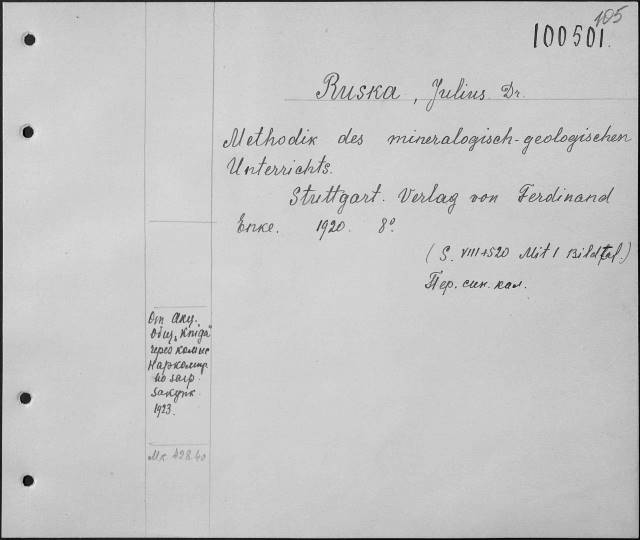 105
100501.
Ruska, Julius Dr.
Methodik des mineralogisch-geologischen
Unterrichts.
Stuttgart. Verlag von Ferdinand
Enke. 1920. 8º.
(S. VIII+520 Mit 1 Bildtaf.)
Пер. син. кал.
От Акц.
Общ. „Kniga"
через комис
Наркомпр.
по загр.
закупк.
1923.
Мк 428.40